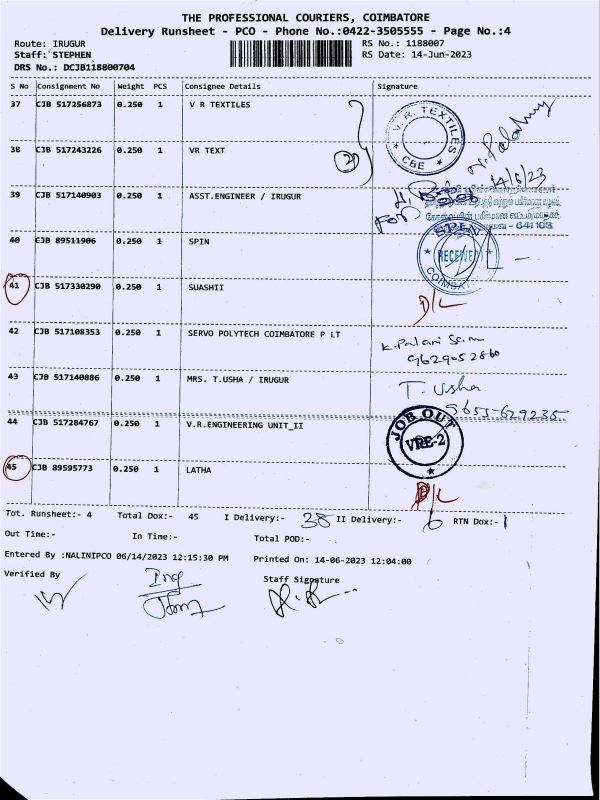 THE PROFESSIONAL COURIERS, COIMBATORE
Delivery Runsheet - PCO - Phone No.:0422-3505555 - Page No.:4
Route: IRUGUR RS No.: 1188007
Staff: STEPHEN RS Date: 14-Jun-2023
DRS No.: DCJB118800704
S No Consignment No Weight PCS Consignee Details Signature
37 CJB 517256873 0.250 1 V R TEXTILES
V. R. TEXTILES
CBE
38 CJB 517243226 0.250 1 VR TEXT
2
14/6/23
39 CJB 517140903 0.250 1 ASST.ENGINEER / IRUGUR
FOR
- 641103
40 CJB 89511906 0.250 1 SPIN
SPIN
RECEIVED
41 CJB 517330290 0.250 1 SUASHII
D/L
42 CJB 517108353 0.250 1 SERVO POLYTECH COIMBATORE P LT
9629052860
43 CJB 517140886 0.250 1 MRS. T.USHA / IRUGUR
T. Usha
9655-629235
44 CJB 517284767 0.250 1 V.R.ENGINEERING UNIT_II
JOB OUT
VRE-2
45 CJB 89595773 0.250 1 LATHA
D/L
Tot. Runsheet:- 4 Total Dox:- 45 I Delivery:- 38 II Delivery:- 6 RTN Dox:- 1
Out Time:- In Time:- Total POD:-
Entered By :NALINIPCO 06/14/2023 12:15:30 PM Printed On: 14-06-2023 12:04:00
Verified By Staff Signature